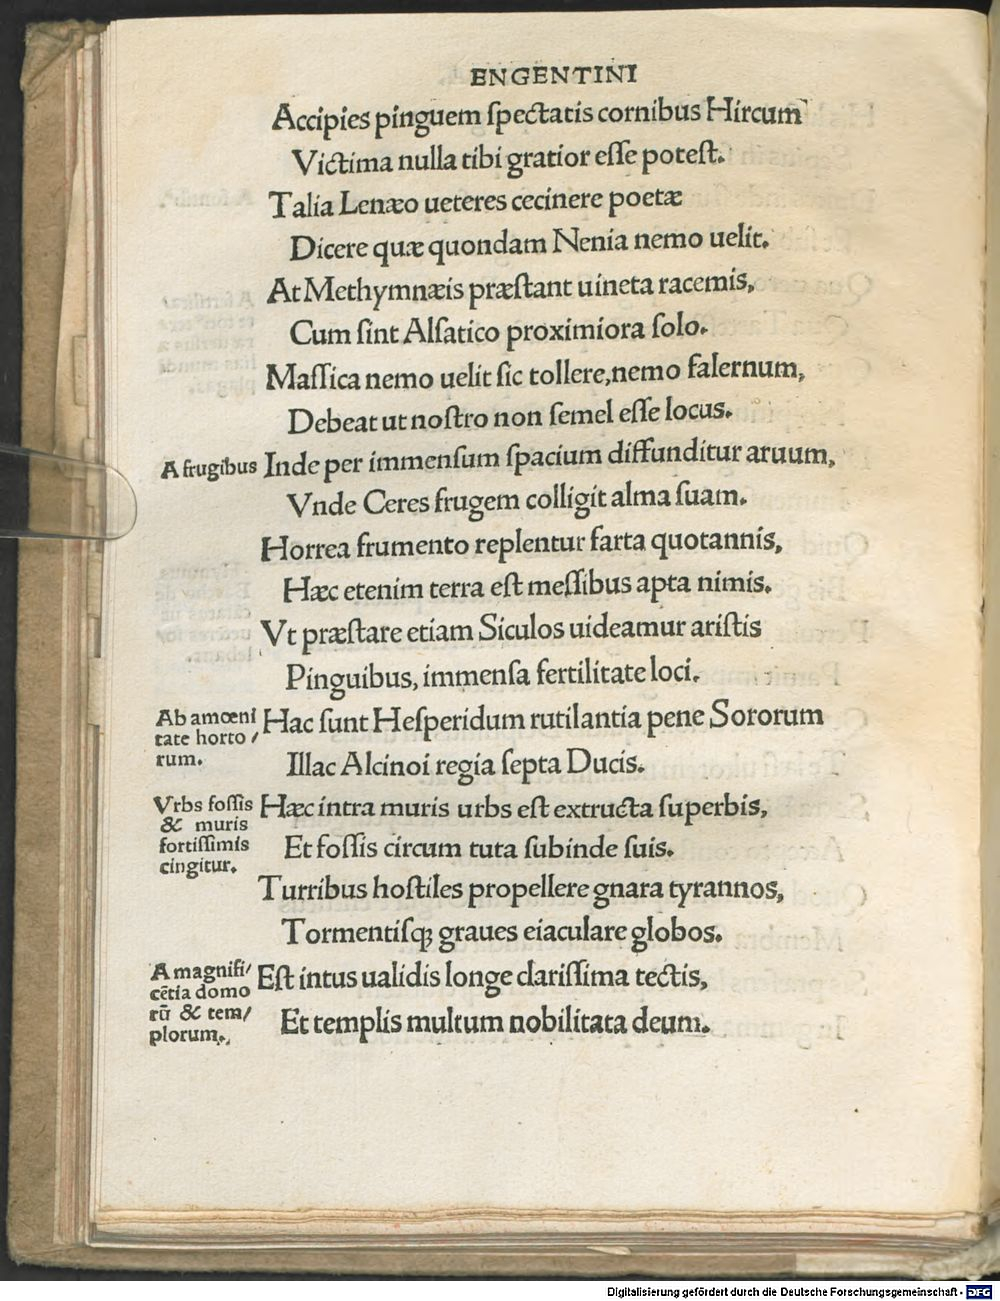 ENGENTINI
Accipies pinguem ſpectatis cornibus Hircum
Victima nulla tibi gratior eſſe poteſt.
Talia Lenæo ueteres cecinere poetæ
Dicere quæ quondam Nenia nemo uelit.
At Methymnæis præſtant uineta racemis,
Cum ſint Alſatico proximiora ſolo.
Maſſica nemo uelit ſic tollere, nemo falernum,
Debeat ut noſtro non ſemel eſſe locus.
A frugibus
Inde per immenſum ſpacium diffunditur aruum,
Vnde Ceres frugem colligit alma ſuam.
Horrea frumento replentur farta quotannis,
Hæc etenim terra eſt meſſibus apta nimis.
Vt præſtare etiam Siculos uideamur ariſtis
Pinguibus, immenſa fertilitate loci.
Ab amœni
tate horto/
rum.
Hac ſunt Heſperidum rutilantia pene Sororum
Illac Alcinoi regia ſepta Ducis.
Vrbs foſſis
& muris
fortiſſimis
cingitur.
Hæc intra muris urbs eſt extructa ſuperbis,
Et foſſis circum tuta ſubinde ſuis.
Turribus hoſtiles propellere gnara tyrannos,
Tormentiſq; graues eiaculare globos.
A magnifi/
cētia domo
rū & tem/
plorum.
Eſt intus ualidis longe clariſſima tectis,
Et templis multum nobilitata deum.
Digitalisierung gefördert durch die Deutsche Forschungsgemeinschaft - DFG